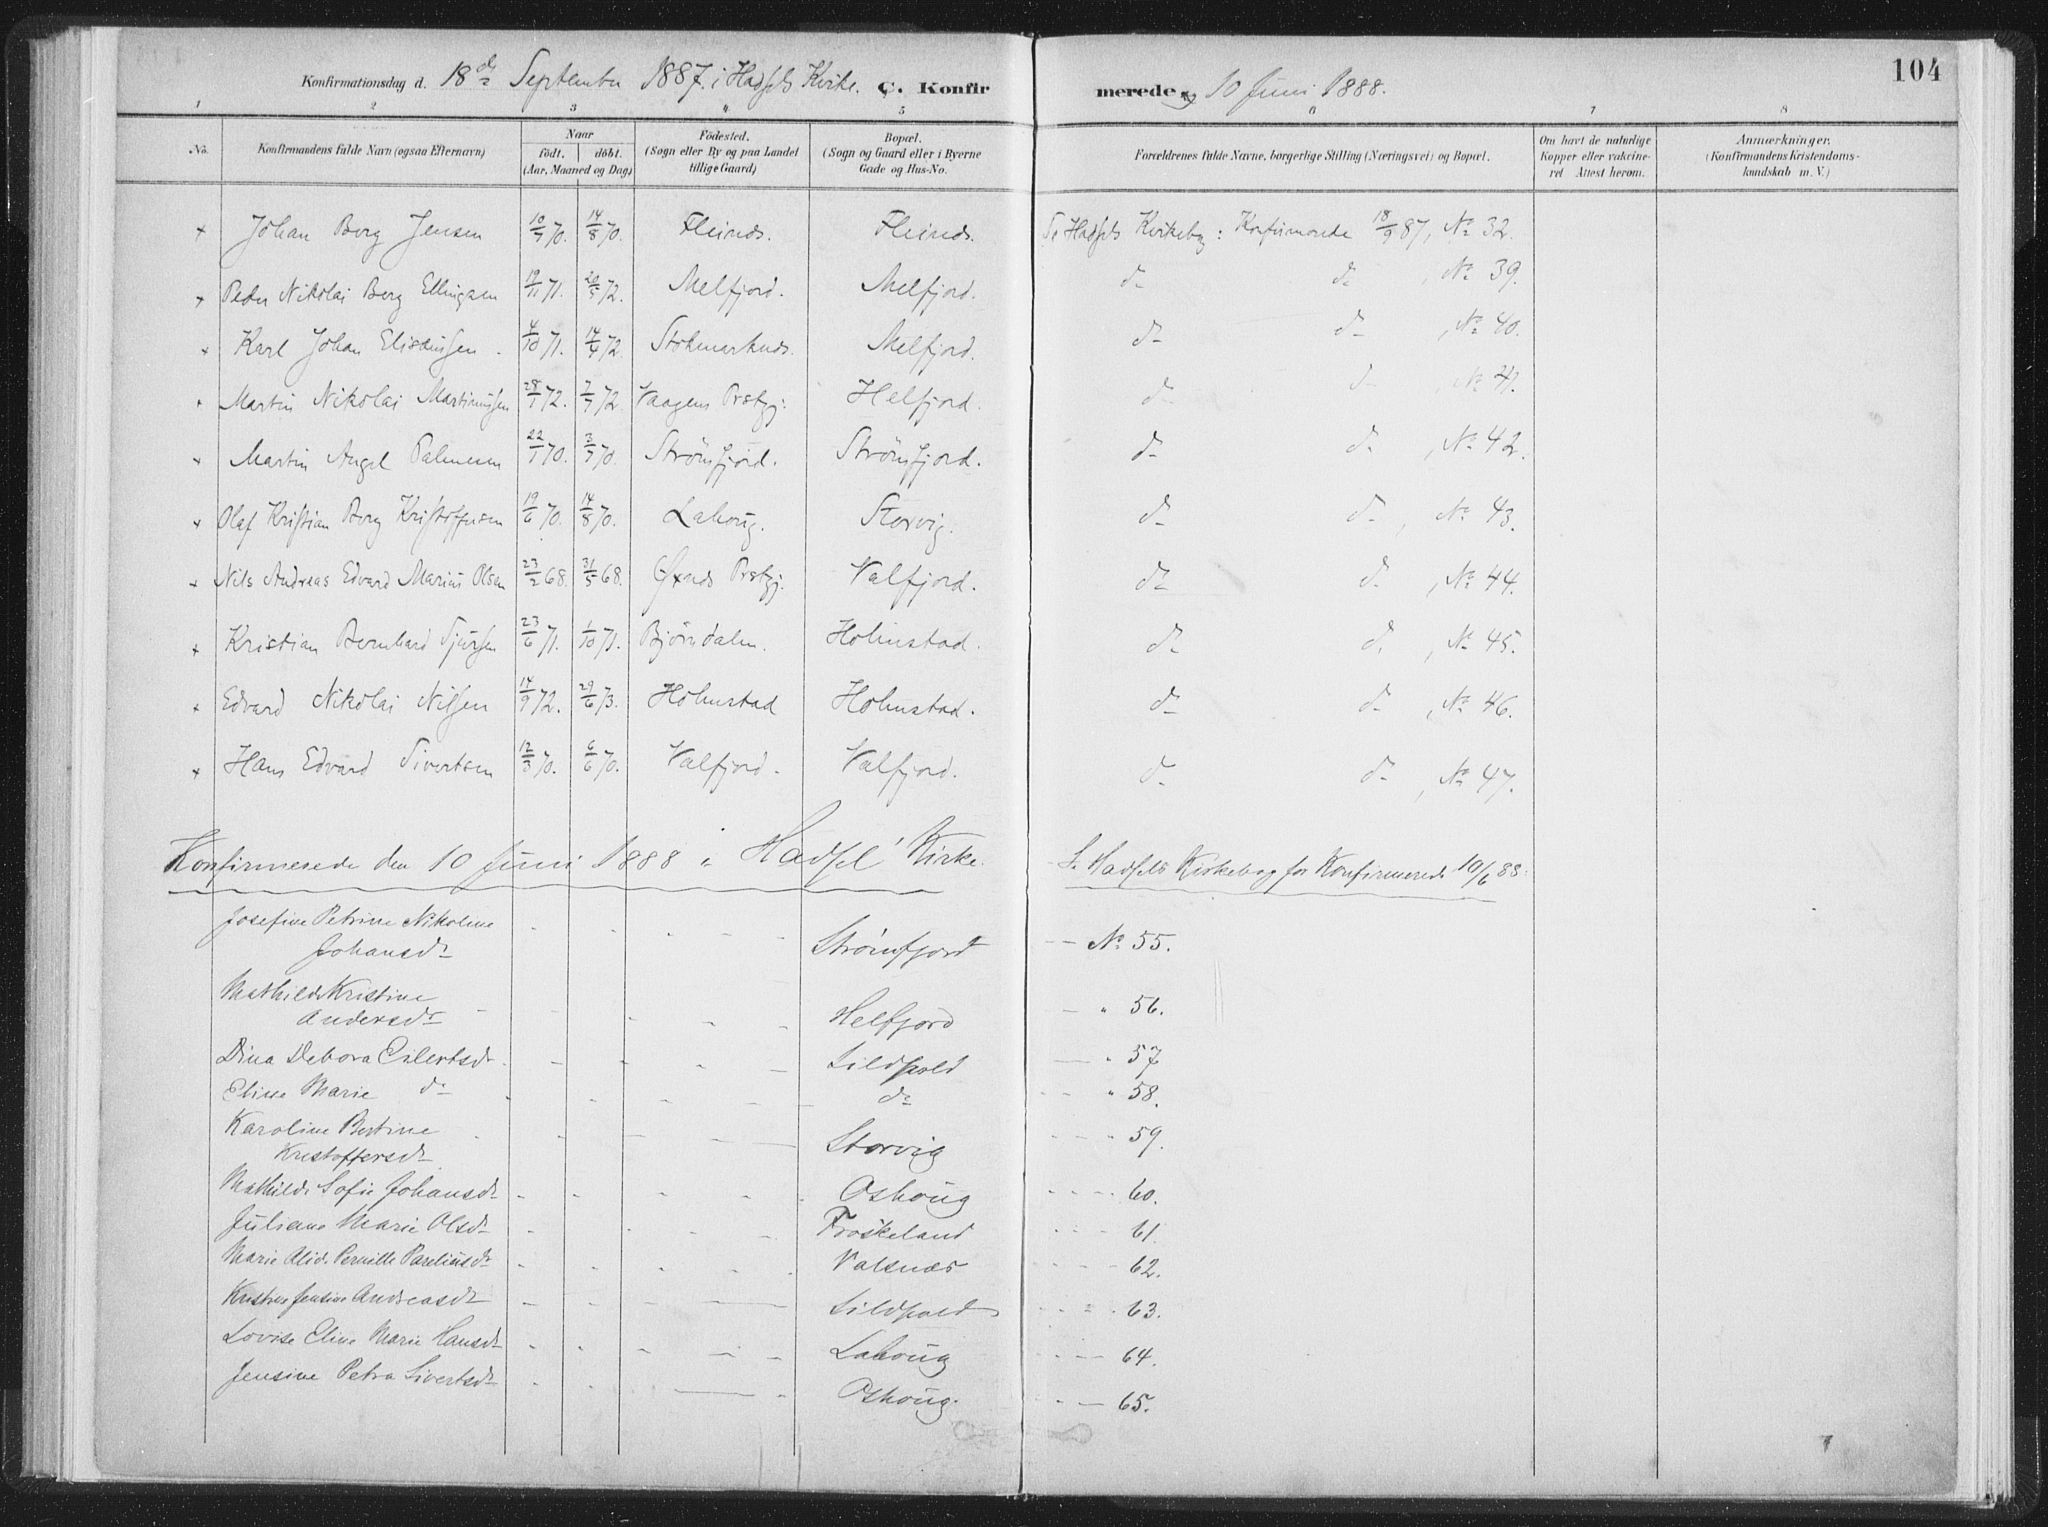 104
Konfirmationsdag d. 18de September 1887. i Hadsels Kirke. C. Konfirmerede og 10 Juni 1888.
1 2 3 4 5 6 7 8
No. Konfirmandens fulde Navn (ogsaa Efternavn) Naar født. døbt. (Aar, Maaned og Dag) Fødested. (Sogn eller By og paa Landet tillige Gaard) Bopæl. (Sogn og Gaard eller i Byerne Gade og Hus-No. Forældrenes fulde Navne, borgerlige Stilling (Næringsvei) og Bopæl. Om havt de naturlige Kopper eller vakcineret Attest herom. Anmærkninger. (Konfirmandens Kristendomskundskab m. V.)
+ Johan Berg Jensen 10/7 70. 14/8 70. Fleinds. Fleinds. Se Hadsels Kirkebog: Konfirmerede 18/9 87, No 32.
+ Peder Nikolai Berg Ellingsen 19/11 71. 20/5 72. Melfjord. Melfjord. do do, No 39.
+ Karl Johan Elisæussen. 4/10 71. 14/4 72. Stokmarknds. Melfjord. do do, No 40.
+ Martin Nikolai Martinussen 28/1 72. 7/7 72. Vaagens Prstgj: Helfjord. do do No 41.
+ Martin Angel Palmesen 22/1 70. 3/7 70. Strömfjord. Strömfjord. do do, No 42.
+ Olaf Kristian Berg Kristoffersen 19/6 70. 14/8 70. Lahoug. Storvig. do do, No 43.
+ Nils Andreas Edvard Marius Olsen 23/2 68. 31/5 68. Øxnds Prstgj: Valfjord. do do, No 44.
+ Kristian Bernhard Sjursen 23/6 71. 1/10 71. Bjørndalen. Holmstad. do do, No 45.
+ Edvard Nikolai Nilssen 14/9 72. 29/6 73. Holmstad Holmstad. do do, No 46.
+ Hans Edvard Sivertsen 12/3 70. 6/6 70. Valfjord. Valfjord. do do, No 47.
Konfirmerede den 10 Juni 1888 i Hadsel Kirke. S. Hadsels Kirkebog for Konfirmerede 10/6 88:
Josefine Petrine Nikoline
Johansdr Strömfjord — No 55.
Mathilde Kristine
Andersdr Helfjord — " 56.
Dina Debora Eilertsdr Sildpold — " 57
Eline Marie do do " 58.
Karoline Bertine
Kristoffersdr Storvig " 59.
Mathilde Sofie Johansdr Oshoug 60.
Juliane Marie Olsdr Froskeland 61.
Marie Alide Pernille Pareliusdr Valsnæs 62.
Kristine Jensine Andreasdr Sildpold 63.
Lovise Eline Marie Hansdr Lahoug 64.
Jensine Petra Sivertsdr Oshoug. 65.